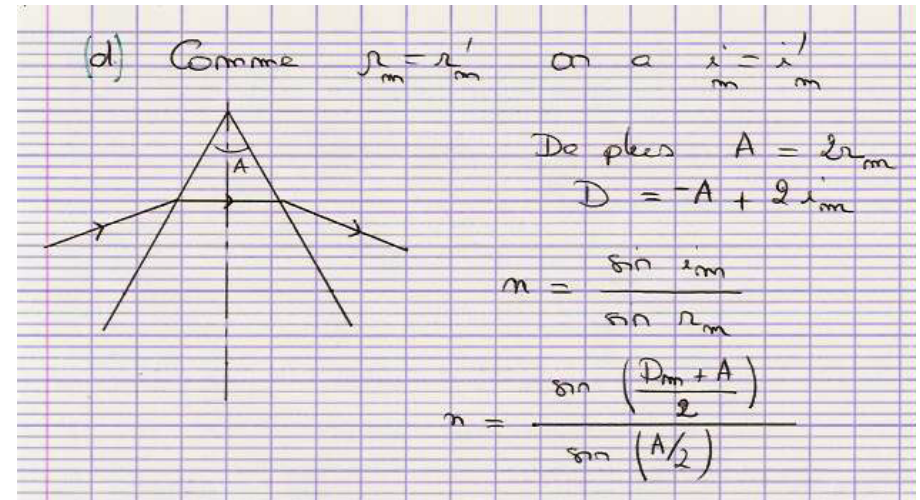 (d) Comme r_m = r'_m on a i_m = i'_m
A
De plus A = 2r_m
D = -A + 2 i_m
n = sin i_m / sin r_m
n = sin ((D_m + A)/2) / sin (A/2)